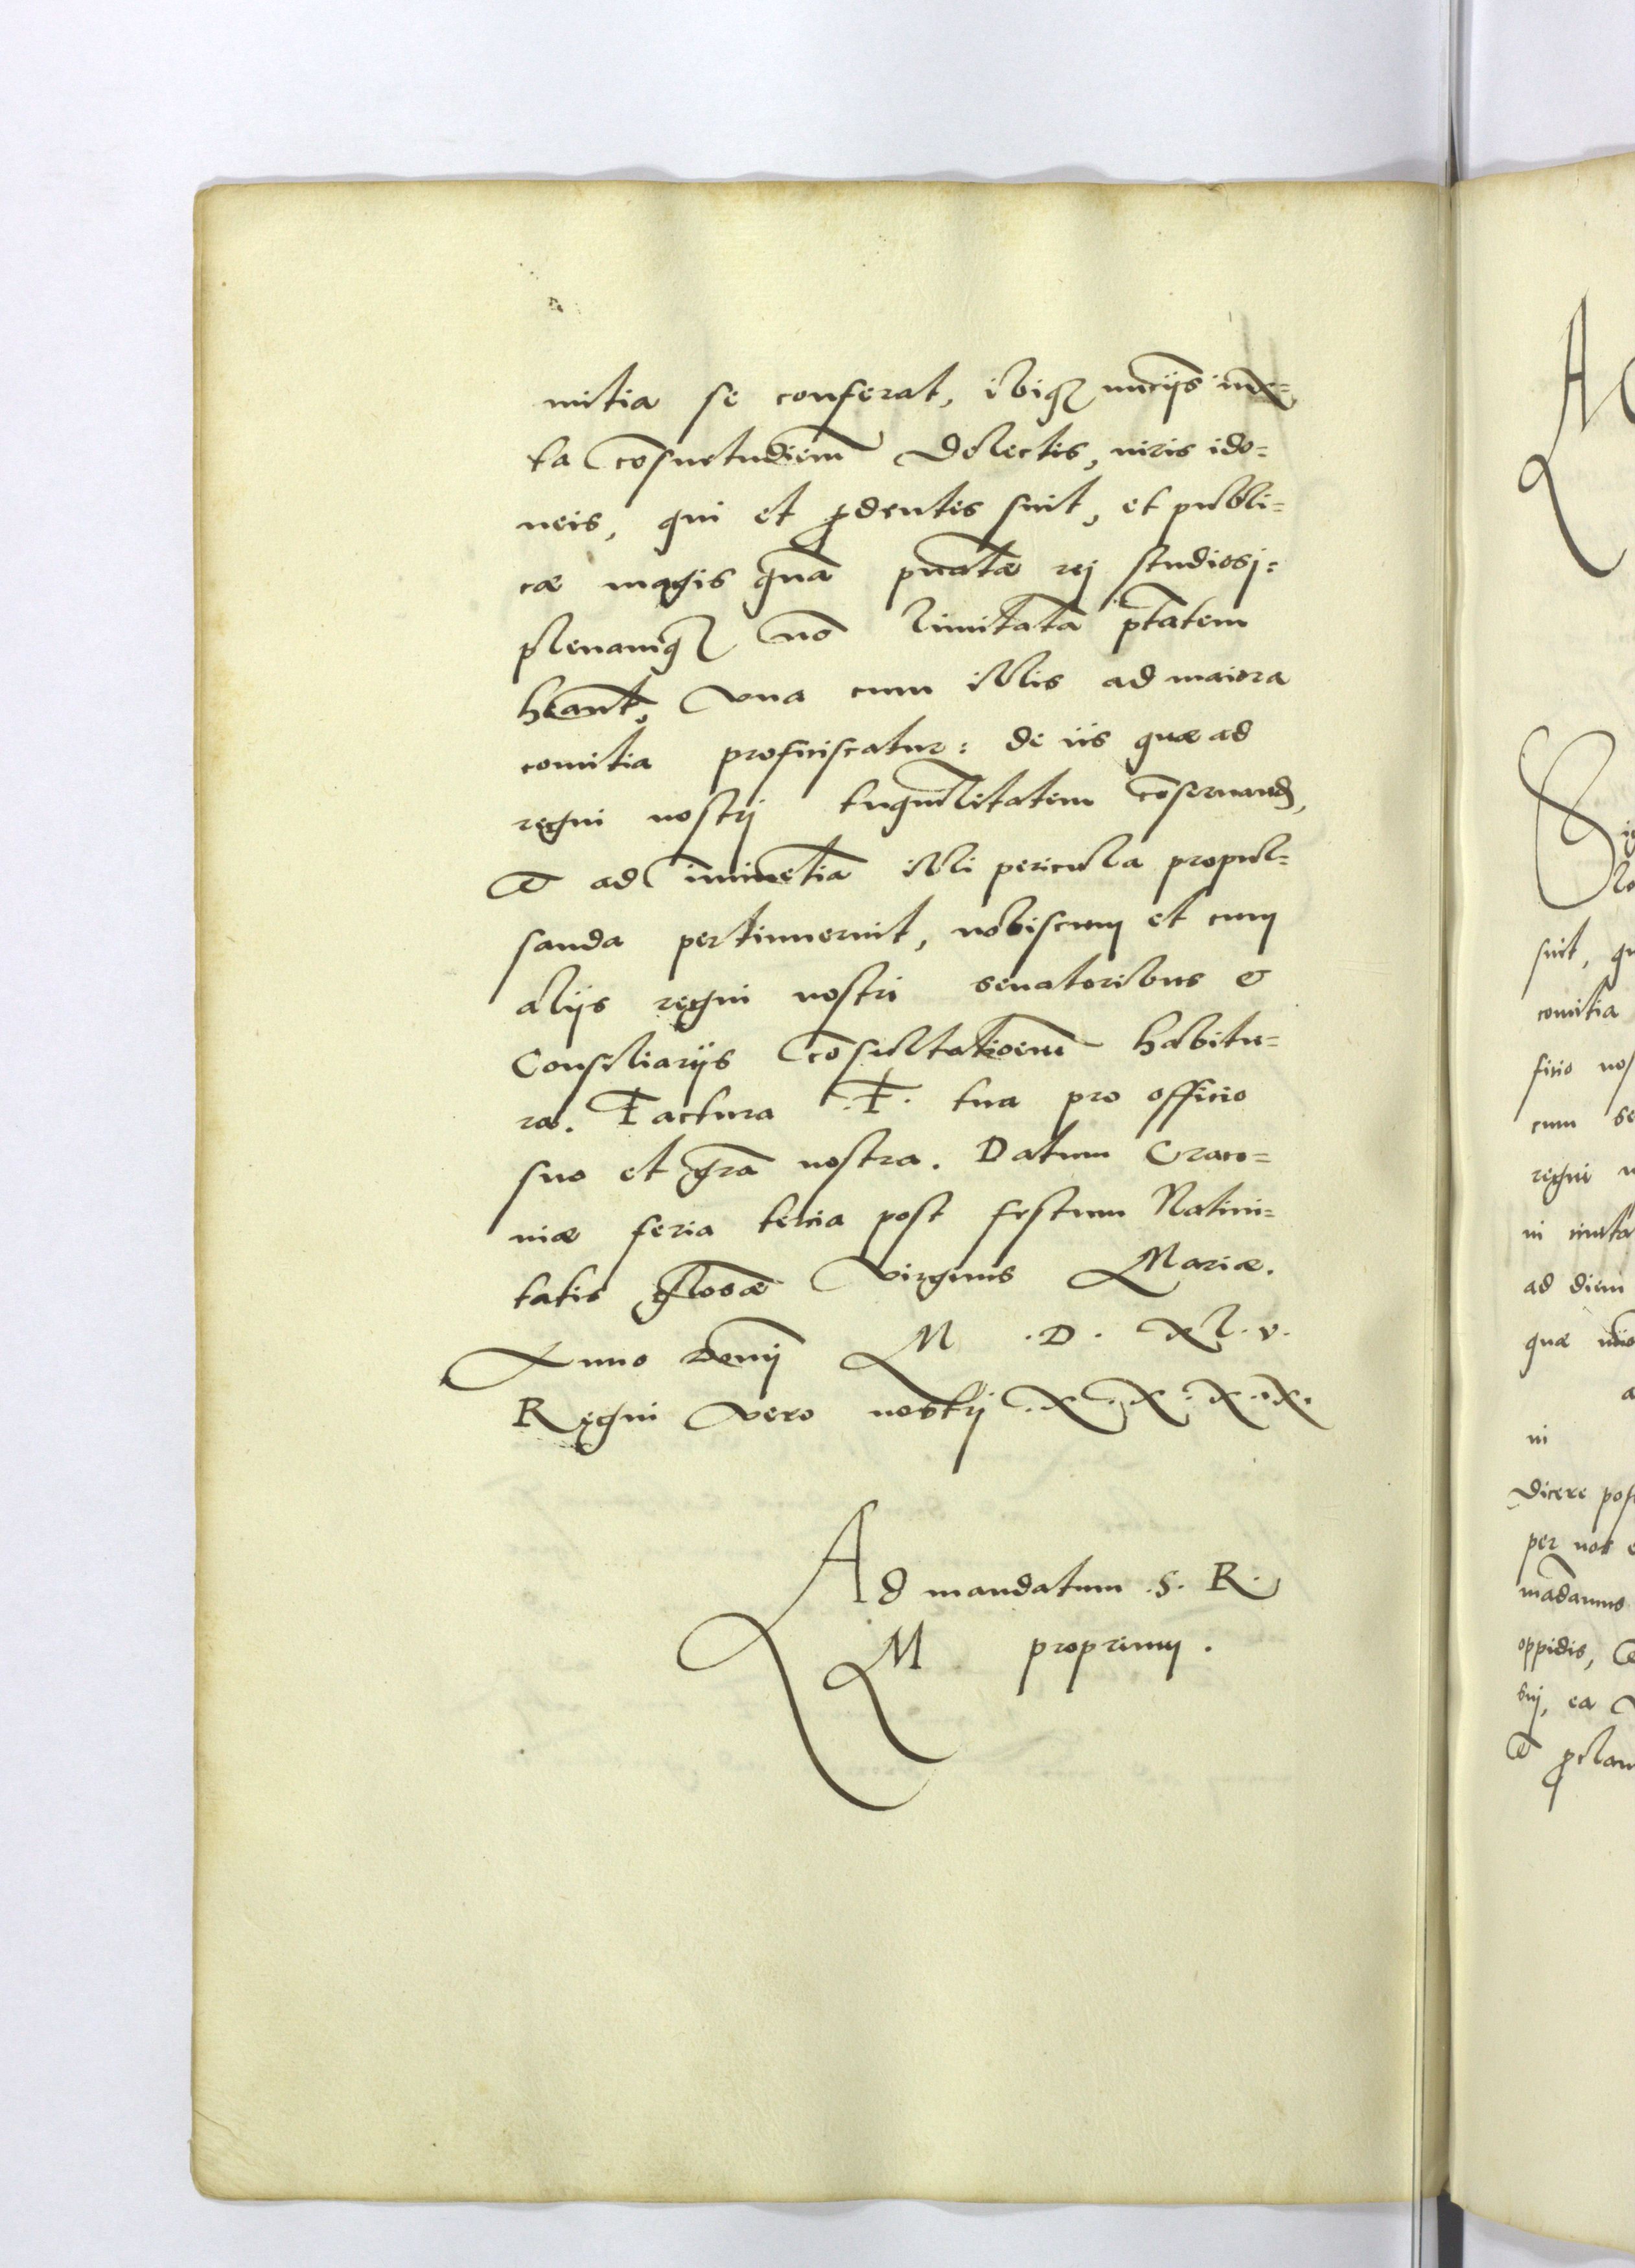 mitia se conferat, ibiqꝫ nũcijs iux=
ta cõsuetudiem̃ delectis, viris ido=
neis, qui et p̱dentes sint, et publi=
cæ magis quã pͥuatæ rej studiosj:
plenamqꝫ nõ limitatã ptãtem
hẽant, vna cum illis ad maiora
comitia proficiscatur: de iis quæ ad
regni nostrj tnq̃uilitatem cõseruand,
et ad im̃inẽtia illi pericula propul=
sanda pertinuerint, nobiscum et cum
alijs regni nostri senatoribus &
Consiliarijs cõsultatioem̃ habitu=
ra. Factura .F. tua pro officio
suo et grã nostra. Datum Craco=
uiæ feria tercia post festum Natiui=
tatis glosæ̃ virginis Mariæ.
Anno domĩj M .D. Xl.v.
Regni vero nostrj .X.X.X.X.
Ad mandatum .S. R.
M proprium.
A
suit,
comitia
ficio
cum
regni
ad diem
quæ
ni
dicere
per nos
mãdamus
oppidis,
ea